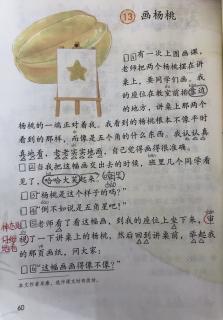 13 画杨桃
有一次上图画课，
老师把两个杨桃摆在讲
桌上，要同学们画。我
的座位在教室前排靠边
的地方，讲桌上那两个
杨桃的一端正对着我。我看到的杨桃根本不像平时
看到的那样，而像是五个角的什么东西。我认认真
真地看，老老实实地画，自己觉得画得很准确。
当我把这幅画交出去的时候，班里几个同学看
见了，哈哈大笑起来。
“杨桃是这个样子的吗？”
“倒不如说是五角星吧！”
老师看了看这幅画，到我的座位上坐下来，审
了一下讲桌上的杨桃，然后回到讲桌前，举起我
的那页画纸，问大家：
“这幅画画得像不像？”
60